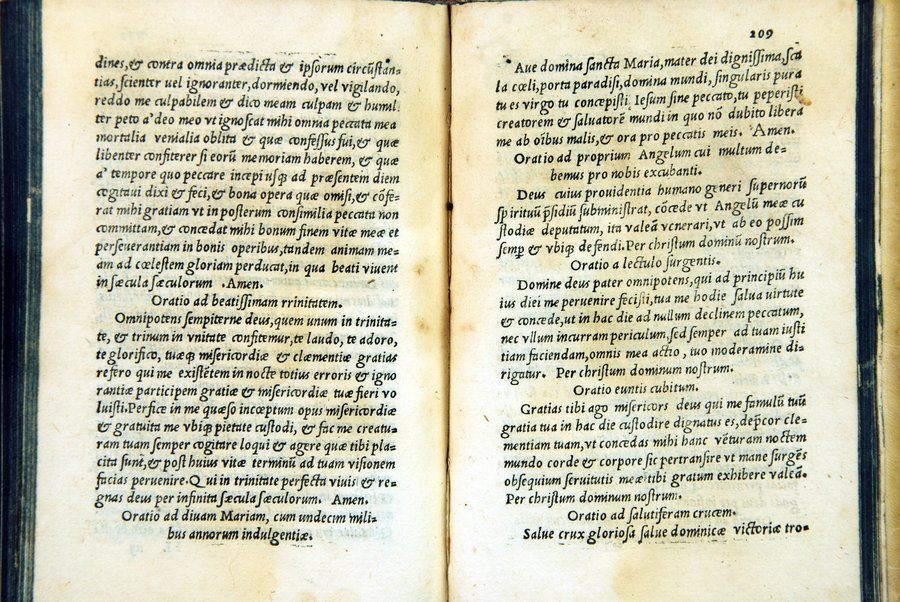 dines,& contra omnia prædicta & ipsorum circũstan-
tias,scienter uel ignoranter,dormiendo, vel vigilando,
reddo me culpabilem & dico meam culpam & humil
ter peto a' deo meo vt ignoscat mihi omnia peccata mea
mortalia venialia oblita & quæ confessus fui,& quæ
libenter cõfiterer si eorũ memoriam haberem, & quæ
a' tempore quo peccare incepi usq; ad præsentem diem
cogitaui dixi & feci,& bona opera quæ omisi, & cõfe-
rat mihi gratiam vt in posterum consimilia peccata non
committam, & concedat mihi bonum finem vitæ meæ et
perseuerantiam in bonis operibus,tandem animam me-
am ad cœlestem gloriam perducat,in qua beati viuent
in sæcula sæculorum .Amen.
Oratio ad beatissimam rrinitatem.
Omnipotens sempiterne deus,quem unum in trinita-
te, & trinum in vnitate confitemur,te laudo, te adoro,
te glorifico, tuæq; misericordiæ & clæmentiæ gratias
refero qui me existẽtem in nocte totius erroris & igno
rantiæ participem gratiæ & misericordiæ tuæ fieri vo
luisti.Perfice in me quæso inceptum opus misericordiæ
& gratuita me vbiq; pietate custodi, & fac me creatu-
ram tuam semper cogitare loqui & agere quæ tibi pla-
cita sunt,& post huius vitæ terminũ ad tuam visionem
facias peruenire.Q ui in trinitate perfecta viuis & re-
gnas deus per infinita sæcula sæculorum. Amen.
Oratio ad diuam Mariam, cum undecim mili-
bus annorum indulgentiæ.
209
Aue domina sancta Maria,mater dei dignissima,sca
la cœli,porta paradisi,domina mundi, singularis pura
tu es virgo tu concepisti Iesum sine peccato,tu peperisti
creatorem & saluatorẽ mundi in quo nõ dubito libera
me ab oĩbus malis,& ora pro peccatis meis. Amen.
Oratio ad proprium Angelum cui multum de-
bemus pro nobis excubanti.
Deus cuius prouidentia humano generi supernorũ
spirituũ p̃sidiũ subministrat, cõcede vt Angelũ meæ cu
stodiæ deputatum, ita valeã venerari, vt ab eo possim
semp & vbiq; defendi.Per christum dominũ nostrum.
Oratio a lectulo surgentis.
Domine deus pater omnipotens,qui ad principiũ hu
ius diei me peruenire fecisti,tua me hodie salua uirtute
& concede,ut in hac die ad nullum declinem peccatum,
nec vllum incurram periculum,sed semper ad tuam iusti
tiam faciendam,omnis mea actio , tuo moderamine di-
rigatur. Per christum dominum nostrum.
Oratio euntis cubitum.
Gratias tibi ago misericors deus qui me famulũ tuũ
gratia tua in hac die custodire dignatus es,dep̃cor cle-
mentiam tuam,vt concedas mihi hanc vẽturam noctem
mundo corde & corpore sic pertransire vt mane surgẽs
obsequium seruitutis meæ tibi gratum exhibere valeã.
Per christum dominum nostrum.
Oratio ad salutiferam crucem.
Salue crux gloriosa salue dominicæ victoriæ tro-